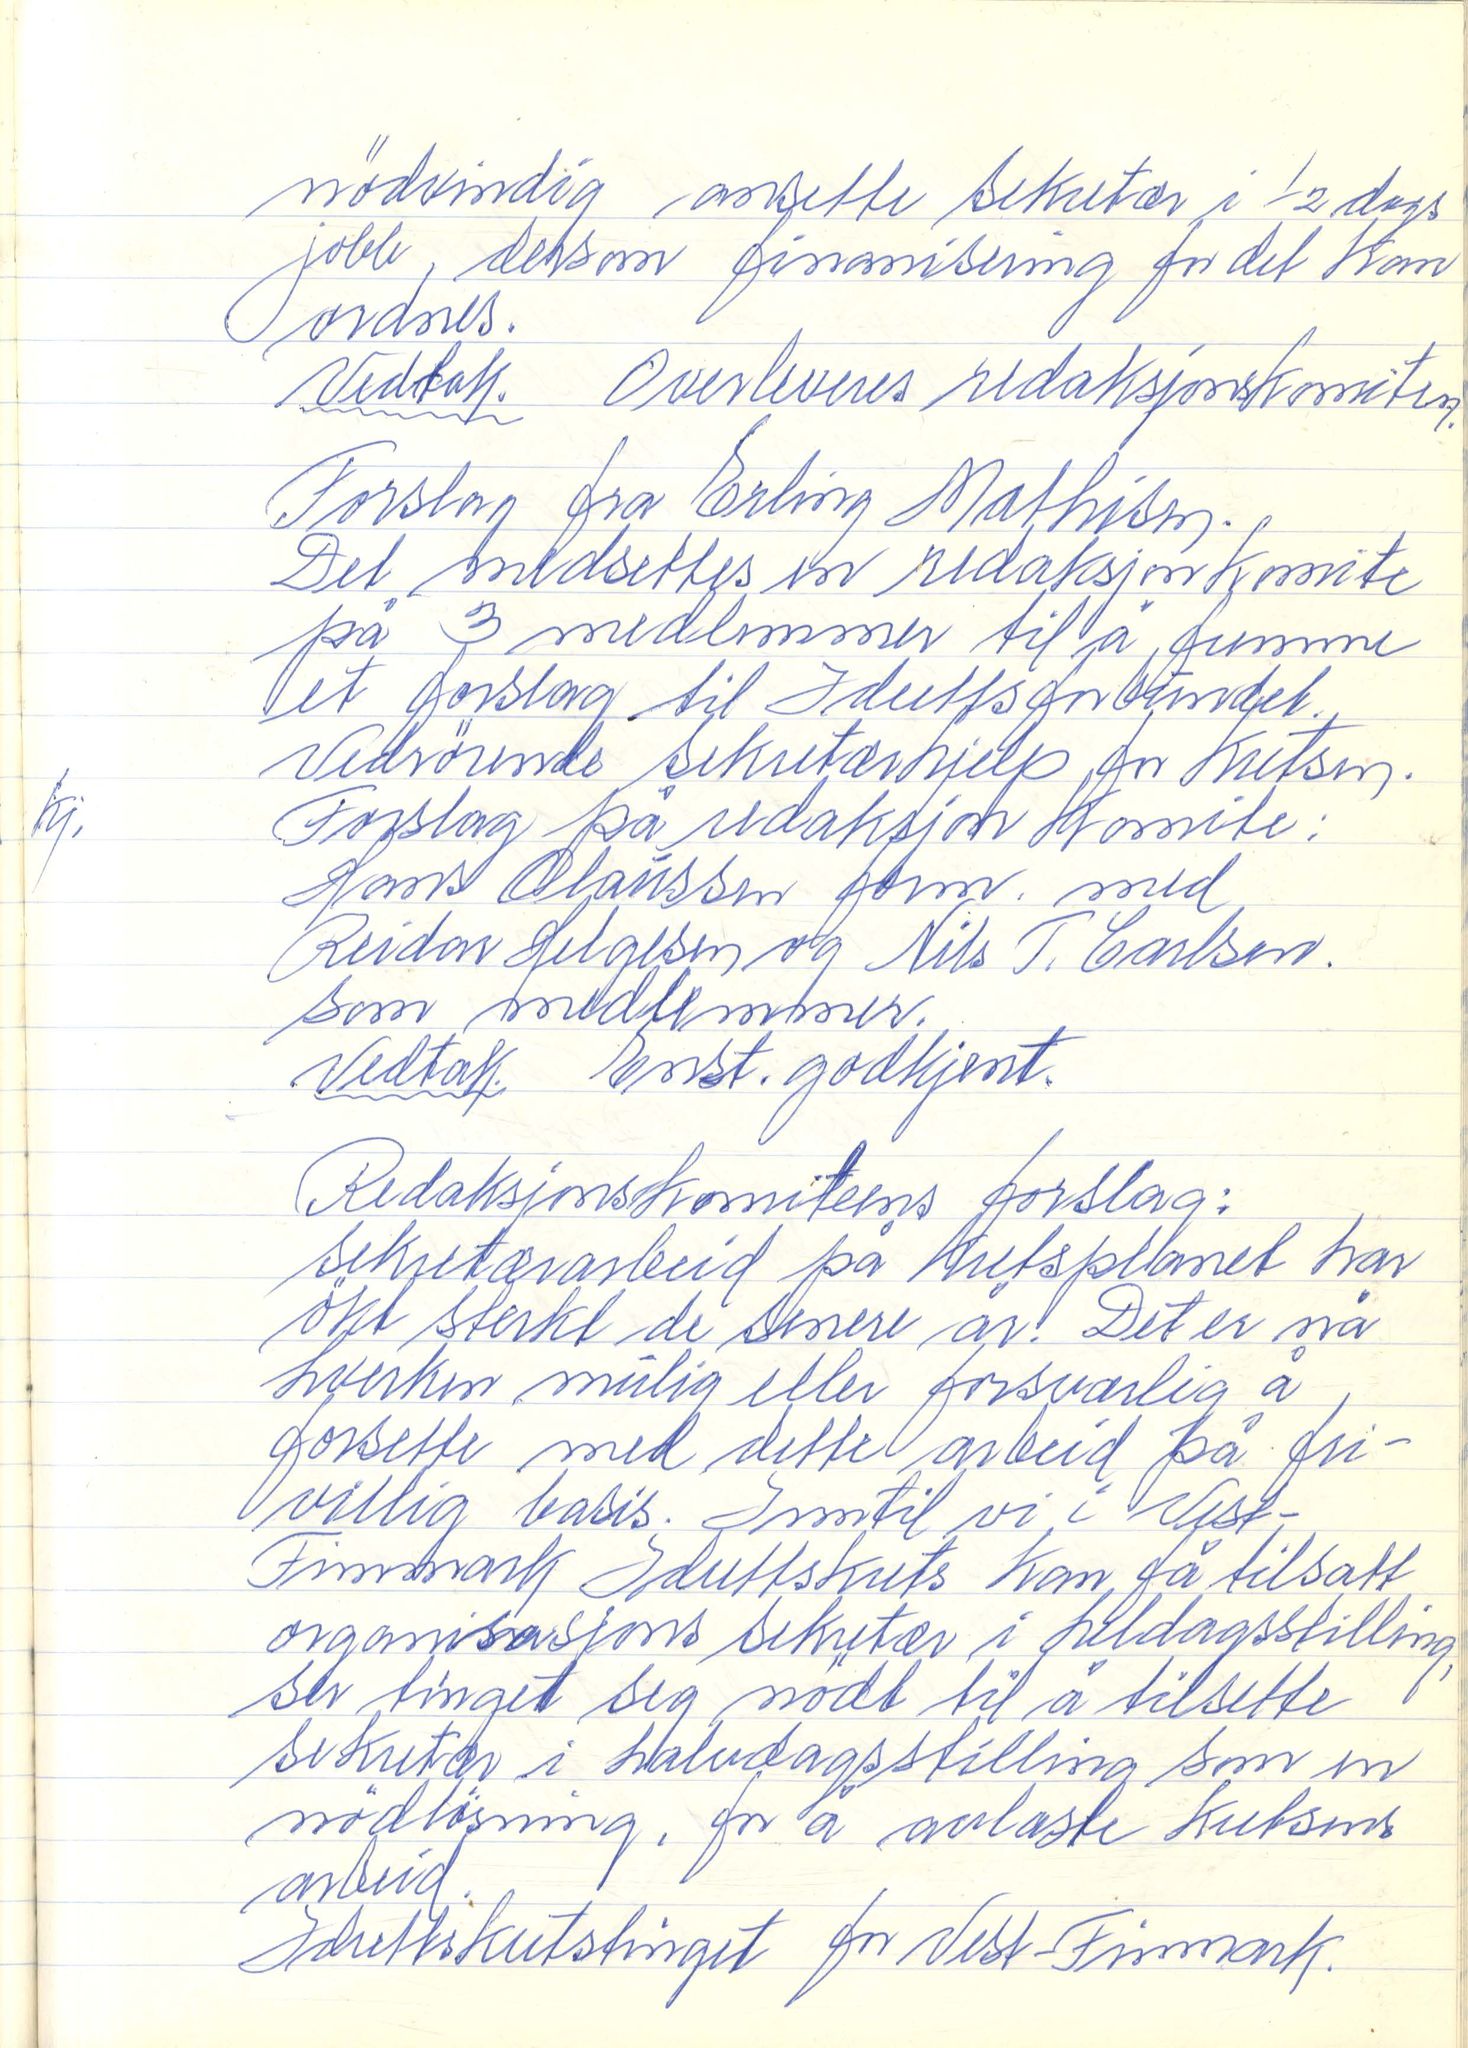 nödvindig ansette sekretær i 1/2 dags
jobb, dersom finanisering for det kan
ordnes.
Vedtak. Overleveres redaksjonskomiten.
Forslag fra Erling Mathisen.
Det nedsettes en redaksjonkomite
på 3 medlemmer til å fremme
et forslag til Idrettsforbundet.
Vedrörende sekretærhjelp for kretsen.
kj.
Forslag på redaksjon komite:
Hans Olaussen form. med
Reidar Helgesen og Nils T. Carlsen.
som medlemmer.
Vedtak. Enst. godkjent.
Redaksjonskomiteens forslag:
Sekretærarbeid på kretsplanet har
ökt sterkt de senere år! Det er nå
hverken mulig eller forsvarlig å
forsette med dette arbeid på fri-
villig basis. Inntil vi i Vest-
Finnmark Idrettskrets kan få tilsatt
organisasjons sekretær i heldagsstilling,
ser tinget seg nödt til å tilsette
sekretær i halvdagsstilling som en
nödlösning, for å avlaste kretsens
arbeid.
Idrettskretstinget for Vest-Finnmark.